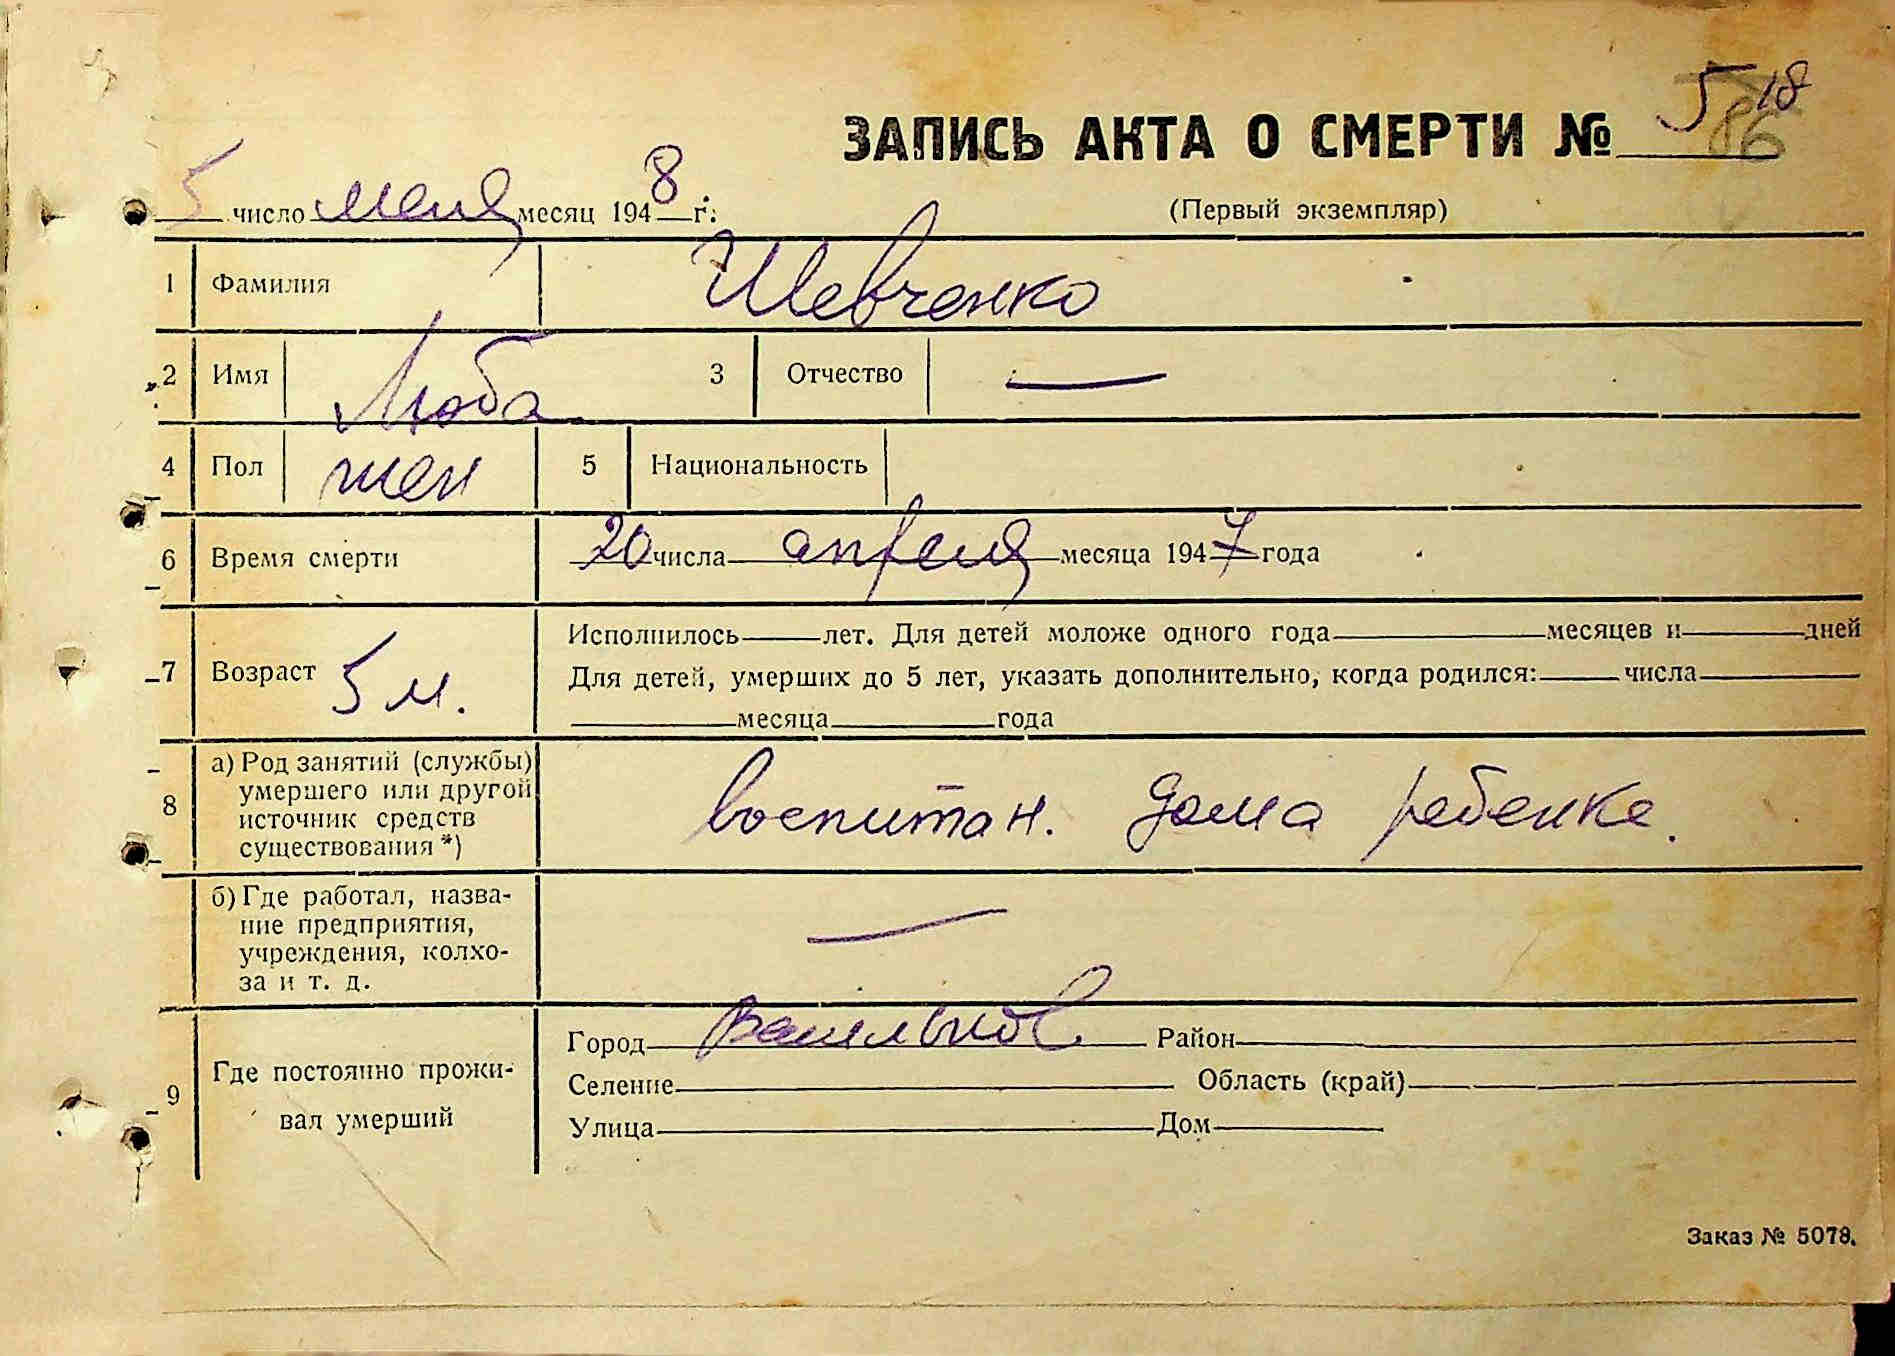 ЗАПИСЬ АКТА О СМЕРТИ № 518
86
5 число мая месяц 1948 г.
(Первый экземпляр)
1 Фамилия Шевченко
2 Имя Люба 3 Отчество —
4 Пол жен 5 Национальность
6 Время смерти 20 числа апреля месяца 1947 года
7 Возраст 5 м. Исполнилось лет. Для детей моложе одного года месяцев и дней
Для детей, умерших до 5 лет, указать дополнительно, когда родился: числа
месяца года
8 а) Род занятий (службы)
умершего или другой
источник средств
существования *)
воспитан. дома ребенка.
б) Где работал, назва-
ние предприятия,
учреждения, колхо-
за и т. д.
—
9 Где постоянно прожи-
вал умерший
Город Васильков Район
Селение Область (край)
Улица Дом
Заказ № 5078.